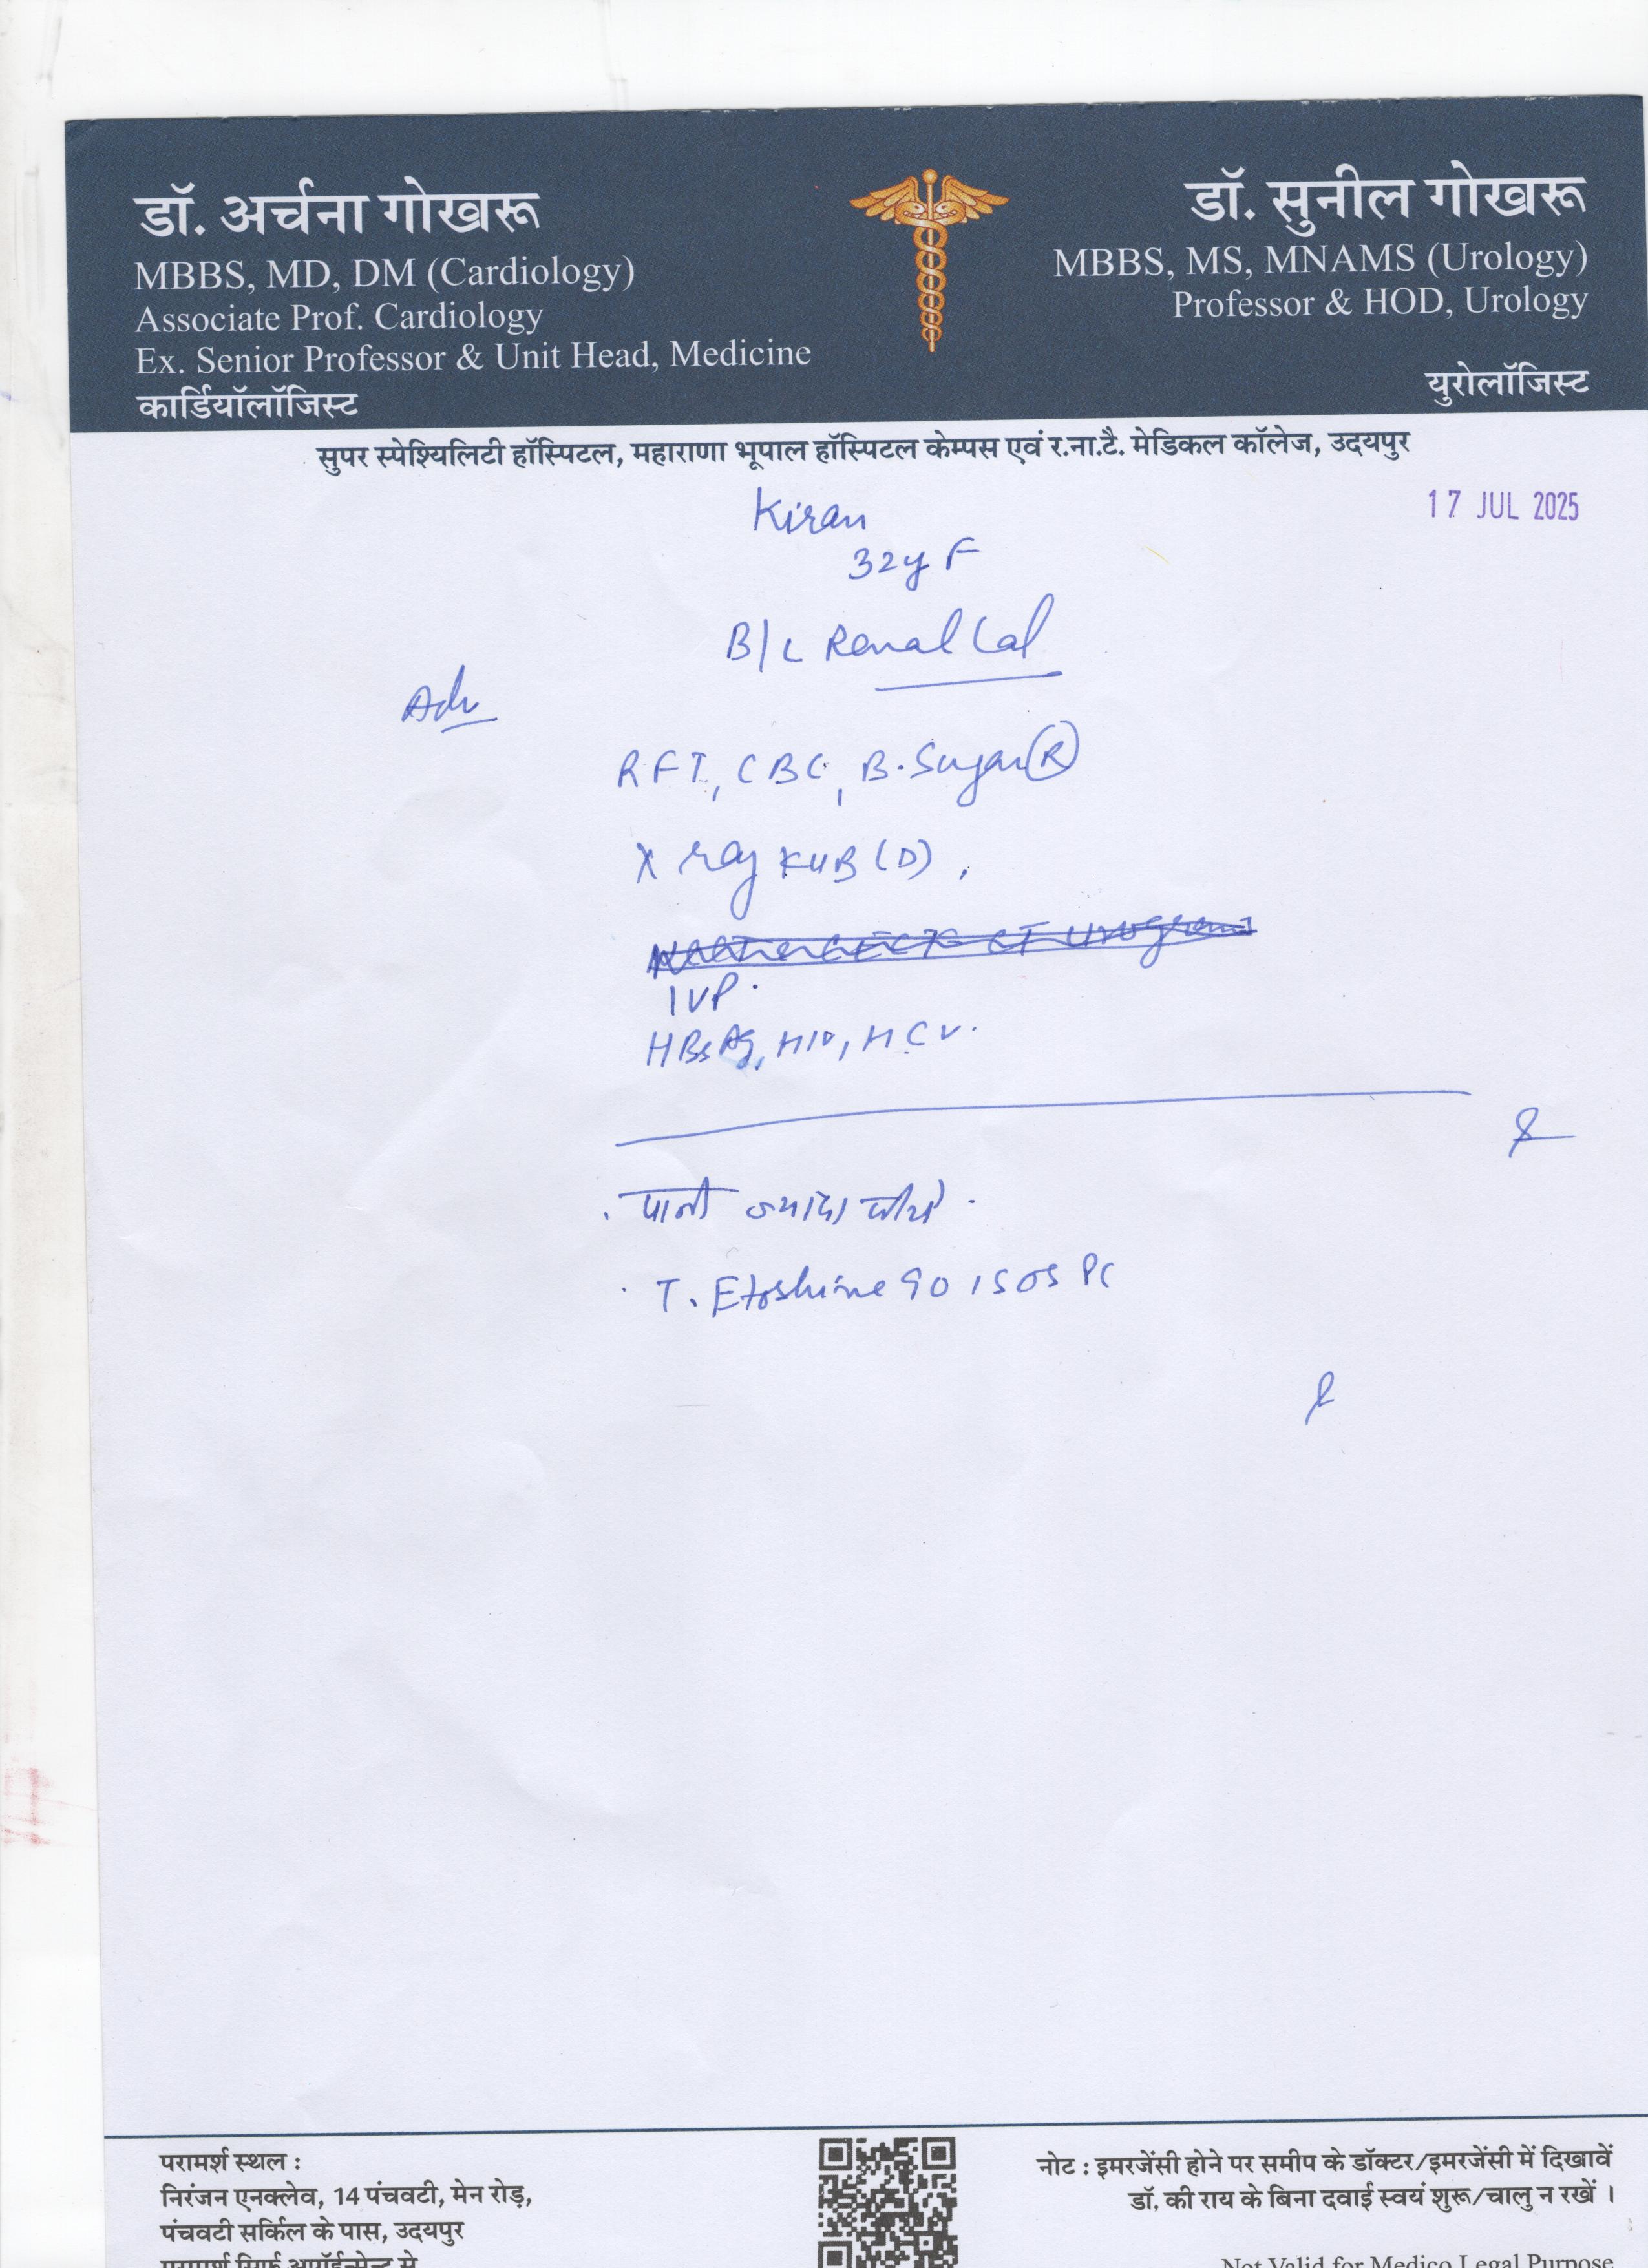 डॉ. अर्चना गोखरू
MBBS, MD, DM (Cardiology)
Associate Prof. Cardiology
Ex. Senior Professor & Unit Head, Medicine
कार्डियॉलॉजिस्ट
डॉ. सुनील गोखरू
MBBS, MS, MNAMS (Urology)
Professor & HOD, Urology
युरोलॉजिस्ट
सुपर स्पेश्यिलिटी हॉस्पिटल, महाराणा भूपाल हॉस्पिटल केम्पस एवं र.ना.टै. मेडिकल कॉलेज, उदयपुर
17 JUL 2025
Kiran
32y F
B/L Renal Cal
Adv
RFT, CBC, B. Sugar (R)
X ray KUB (D),
CT Urogram
IVP.
HBsAg, HIV, HCV.
. पानी ज्यादा पीये .
. T. Etoshine 90 1 SOS PC
परामर्श स्थल :
निरंजन एनक्लेव, 14 पंचवटी, मेन रोड़,
पंचवटी सर्किल के पास, उदयपुर
परामर्श सिर्फ अपॉईन्मेन्ट से
नोट : इमरजेंसी होने पर समीप के डॉक्टर/इमरजेंसी में दिखावें
डॉ. की राय के बिना दवाई स्वयं शुरू/चालु न रखें ।
Not Valid for Medico Legal Purpose